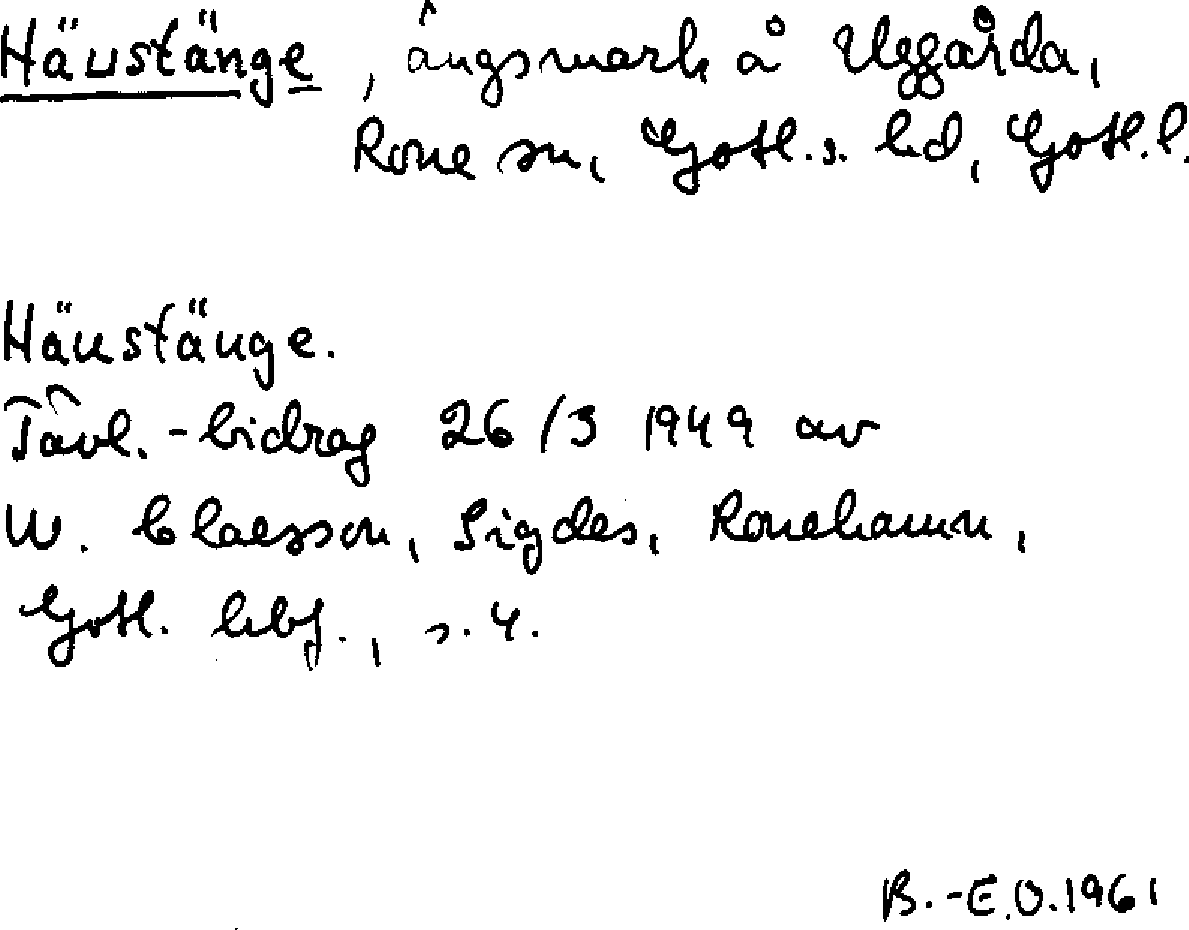 Häustänge, ängsmark å Uggårda,
Rone sn, Gotl.s. hd, Gotl.l.
Häustänge.
Tävl.-bidrag 26/3 1949 av
W. Claesson, Sigdes, Ronehamn,
Gotl. hbf., s. 4.
B.-E.O.1961